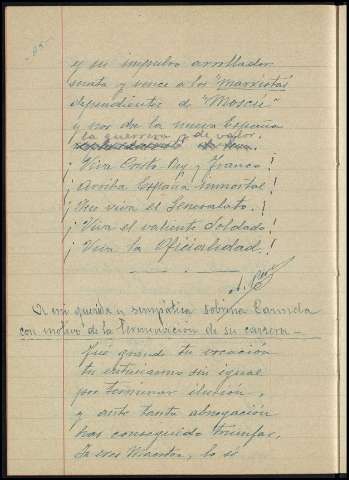 y su impulso arrollador
y vence a los "marxistas"
dependientes de "Moscú"
y nos da la nueva España
la guerrera y de valor.
¡Viva Cristo Rey y Franco!
¡Arriba España inmortal!
¡Que viva el Generalato!
¡Viva el valiente Soldado!
¡Viva la Oficialidad!
A mi querida y simpática sobrina
con motivo de la terminación de su carrera —
Qué grande tu vocación
tu entusiasmo sin igual
por terminar ilusión,
y ante tanta abnegación
has conseguido triunfar.
Ya eres Maestra, lo sé